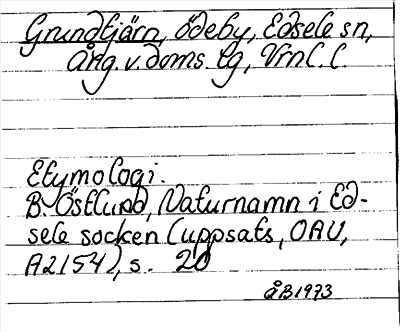 Grundtjärn, ödeby, Edsele sn,
Ång. v. doms. lg, Vrnl. l.
Etymologi.
B. Östlund, Naturnamn i Ed-
sele socken (uppsats, OAU,
A2154), s. 20
ÅB 1973